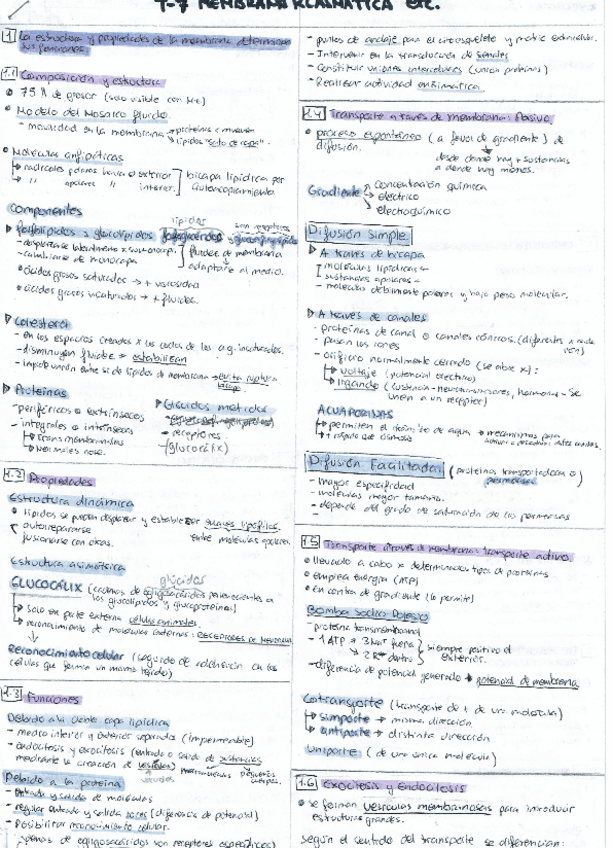 T-7 MEMBRANA PLASMÁTICA ETC.
1 La estructura y propiedades de la membrana determinan
sus funciones.
1.1 Composición y estructura
• 75 Å de grosor (solo visible con M.e)
• Modelo del Mosaico fluido.
- movilidad en la membrana → proteínas
lípidos
• Moléculas anfipáticas
→ radicales polares hacia el exterior
→ " apolares " interior.
bicapa lipídica por
autoacoplamiento
Componentes
lípidos
fosfolípidos glucolípidos
- cambiarse de monocapa
fluidez de membrana
adaptarse al medio.
• ácidos grasos saturados → + viscosidad
• ácidos grasos insaturados → + fluidez
Colesterol
- en los espacios creados x las colas de los a.g. insaturados.
- disminuyen fluidez → estabilizan
- impide unión entre sí de lípidos de membrana → evita ruptura
bicapa
Proteínas
- periféricas o extrínsecas
- integrales o intrínsecas
→ transmembranales
→ normales nose.
Glúcidos
- receptores.
- (glucocálix)
1.2 Propiedades
Estructura dinámica
• lípidos se pueden desplazar y establecer
entre moléculas apolares.
autorrepararse
fusionarse con otras.
Estructura asimétrica
glúcidos
GLUCOCÁLIX (cadenas de oligosacáridos pertenecientes a
los glucolípidos y glucoproteínas)
→ solo en parte externa células animales.
→ reconocimiento de moléculas externas: RECEPTORES DE MEMBRANA
Reconocimiento celular (seguido de adhesión en las
células que forman un mismo tejido)
1.3 Funciones
Debido a la doble capa lipídica
- medio interior y exterior separados (impermeable)
- endocitosis y exocitosis (entrada o salida de sustancias
mediante la creación de vesículas)
Debido a la proteína
- entrada y salida de moléculas
- regular entrada y salida iones (diferencia de potencial)
- Posibilitar reconocimiento celular.
cadenas de oligosacáridos son receptores específicos)
- puntos de anclaje para el citoesqueleto y matriz extracelular.
- Intervenir en la transducción de señales
- Constituir uniones intercelulares (unión proteínas)
- Realizar actividad enzimática.
1.4 Transporte a través de membrana: Pasivo.
• proceso espontáneo (a favor de gradiente) de
difusión.
desde donde hay + sustancias
a donde hay menos.
Gradiente
→ concentración química
→ eléctrico
→ electroquímico
Difusión simple
A través de bicapa
moléculas lipídicas
sustancias apolares
- moléculas débilmente polares y bajo peso molecular.
A través de canales
- proteínas de canal o canales iónicos. (diferentes x cada
ión)
- pasan los iones
- orificio normalmente cerrado (se abre x):
→ voltaje (potencial eléctrico)
→ ligando (sustancia - neurotransmisores, hormonas - se
unen a un receptor)
ACUAPORINAS
→ permiten el tránsito de agua → mecanismos para
→ + rápido que ósmosis
Difusión Facilitada (proteínas transportadoras o)
permeasas
- mayor especificidad
- moléculas mayor tamaño.
- depende del grado de saturación de las permeasas
1.5 Transporte a través de membrana: transporte activo.
• llevado a cabo x determinados tipos de proteínas
• emplea energía (ATP)
• en contra de gradiente (lo permite)
Bomba Sodio-Potasio
- proteína transmembrana
- 1 ATP → 3 Na+ fuera
→ 2 K+ dentro
siempre positivo el
exterior.
- diferencia de potencial generado → potencial de membrana
Cotransporte (transporte de + de una molécula)
→ simporte → misma dirección
→ antiporte → distinta dirección
Uniporte (de una única molécula)
1.6 Exocitosis y Endocitosis
• se forman vesículas membranosas para introducir
estructuras grandes.
según el sentido del transporte se diferencian: